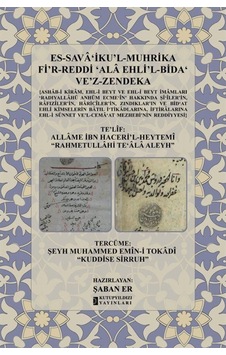 ES-SAVÂ‘İKU'L-MUHRİKA
Fİ'R-REDDİ ‘ALÂ EHLİ'L-BİDA‘
VE'Z-ZENDEKA
(ASHÂB-I KİRÂM, EHL-İ BEYT VE EHL-İ BEYT İMÂMLARI
‘RADIYALLÂHÜ ANHÜM ECME‘ÎN’ HAKKINDA Şİ‘ÎLER'İN,
RÂFIZÎLER'İN, HÂRİCÎLER'İN, ZINDIKLAR'IN VE BİD‘AT
EHLİ KİMSELERİN BÂTIL İ‘TİKÂDLARINA, İFTİRALARINA
EHL-İ SÜNNET VE'L-CEMÂ‘AT MEZHEBİ'NİN REDDİYYESİ)
TE'LÎF:
ALLÂME İBN HACERİ'L-HEYTEMÎ
“RAHMETULLÂHİ TE‘ÂLÂ ALEYH”
TERCÜME:
ŞEYH MUHAMMED EMÎN-İ TOKÂDÎ
“KUDDİSE SİRRUH”
HAZIRLAYAN:
ŞABAN ER
KUTUPYILDIZI
YAYINLARI